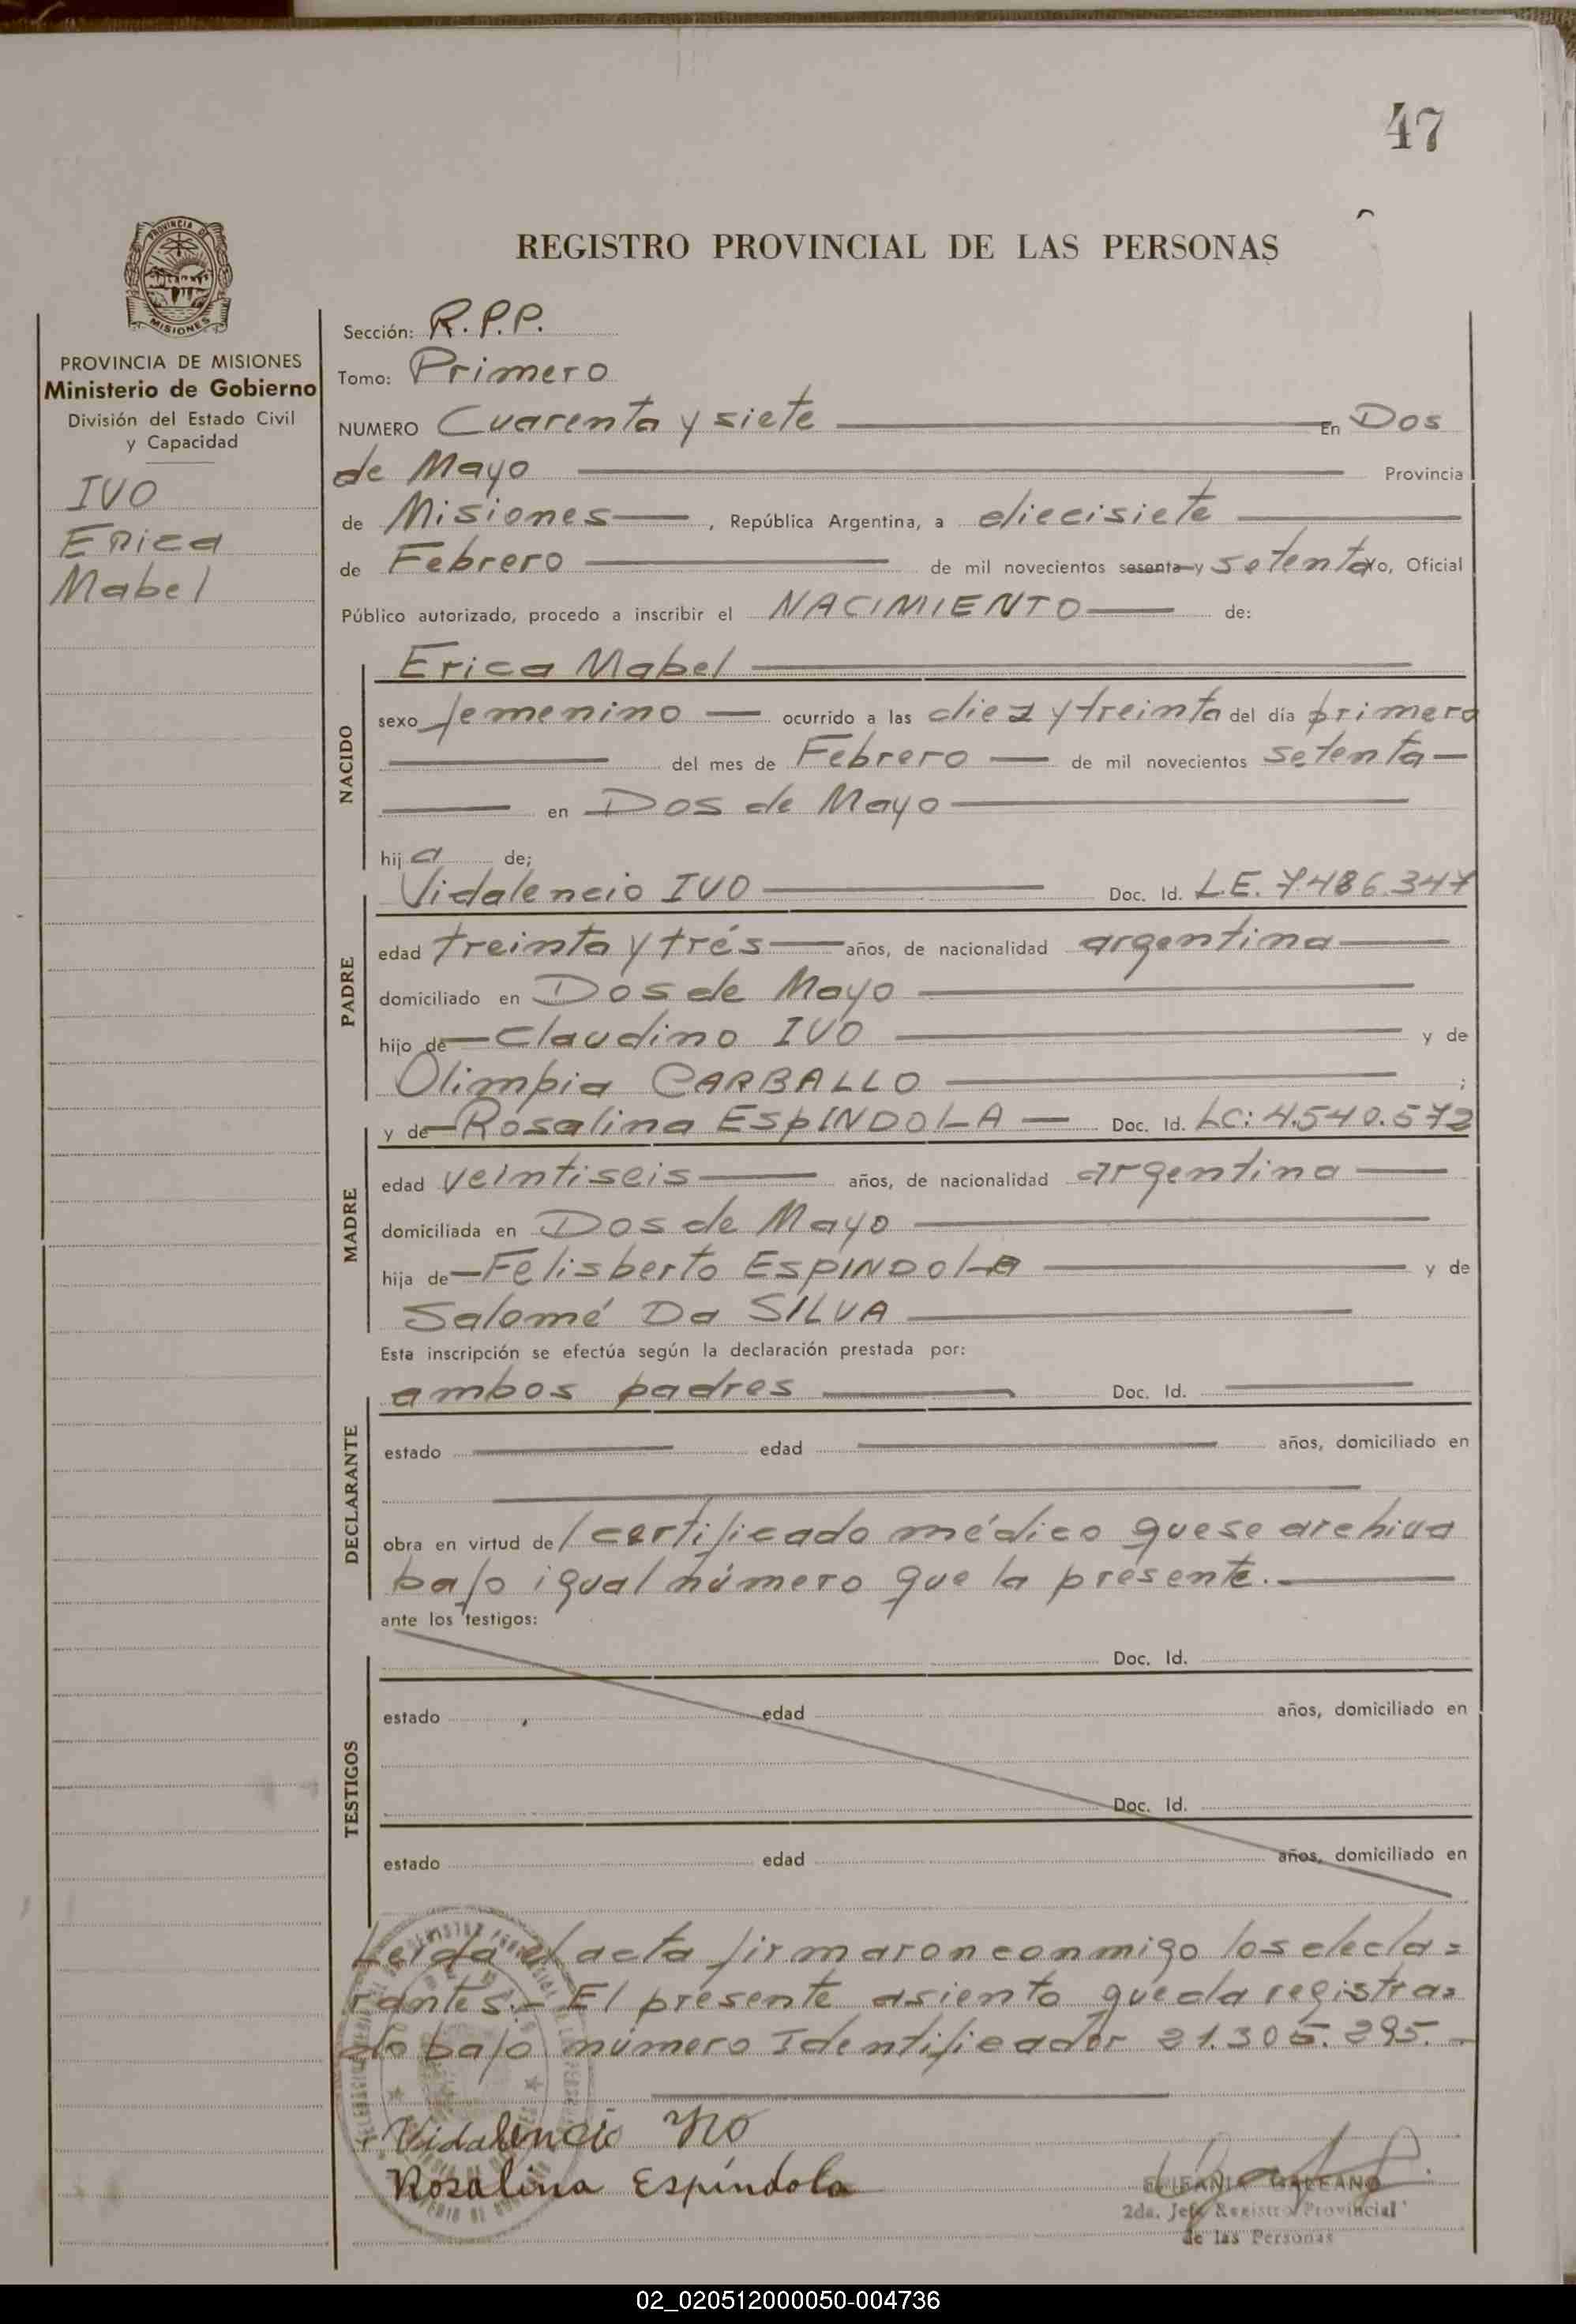 47
REGISTRO PROVINCIAL DE LAS PERSONAS
PROVINCIA DE MISIONES
Ministerio de Gobierno
División del Estado Civil
y Capacidad
IVO
Erica
Mabel
Sección: R.P.P.
Tomo: Primero
NUMERO Cuarenta y siete En Dos
de Mayo Provincia
de Misiones , República Argentina, a diecisiete
de Febrero de mil novecientos sesenta y setenta Yo, Oficial
Público autorizado, procedo a inscribir el NACIMIENTO de:
NACIDO
Erica Mabel
sexo femenino ocurrido a las diez y treinta del día primero
del mes de Febrero de mil novecientos setenta
en Dos de Mayo
hija de;
PADRE
Vidalencio IVO Doc. Id. L.E. 7486.347
edad treinta y trés años, de nacionalidad argentina
domiciliado en Dos de Mayo
hijo de Claudino IVO y de
Olimpia CARBALLO ;
MADRE
y de Rosalina ESPINDOLA Doc. Id. LC: 4.540.572
edad veintiseis años, de nacionalidad argentina
domiciliada en Dos de Mayo
hija de Felisberto ESPINDOLA y de
Salomé Da SILVA
Esta inscripción se efectúa según la declaración prestada por:
DECLARANTE
ambos padres Doc. Id.
estado edad años, domiciliado en
obra en virtud del certificado médico que se archiva
bajo igual número que la presente.
ante los testigos:
TESTIGOS
Doc. Id.
estado edad años, domiciliado en
Doc. Id.
estado edad años, domiciliado en
Leída el acta firmaron conmigo los decla=
rantes.- El presente asiento queda registra=
do bajo número Identificador 21.305.295.-
Vidalencio Ivo
Rosalina Espíndola
EPIFANIA GALEANO
2da. Jefe Registro Provincial
de las Personas
02_020512000050-004736